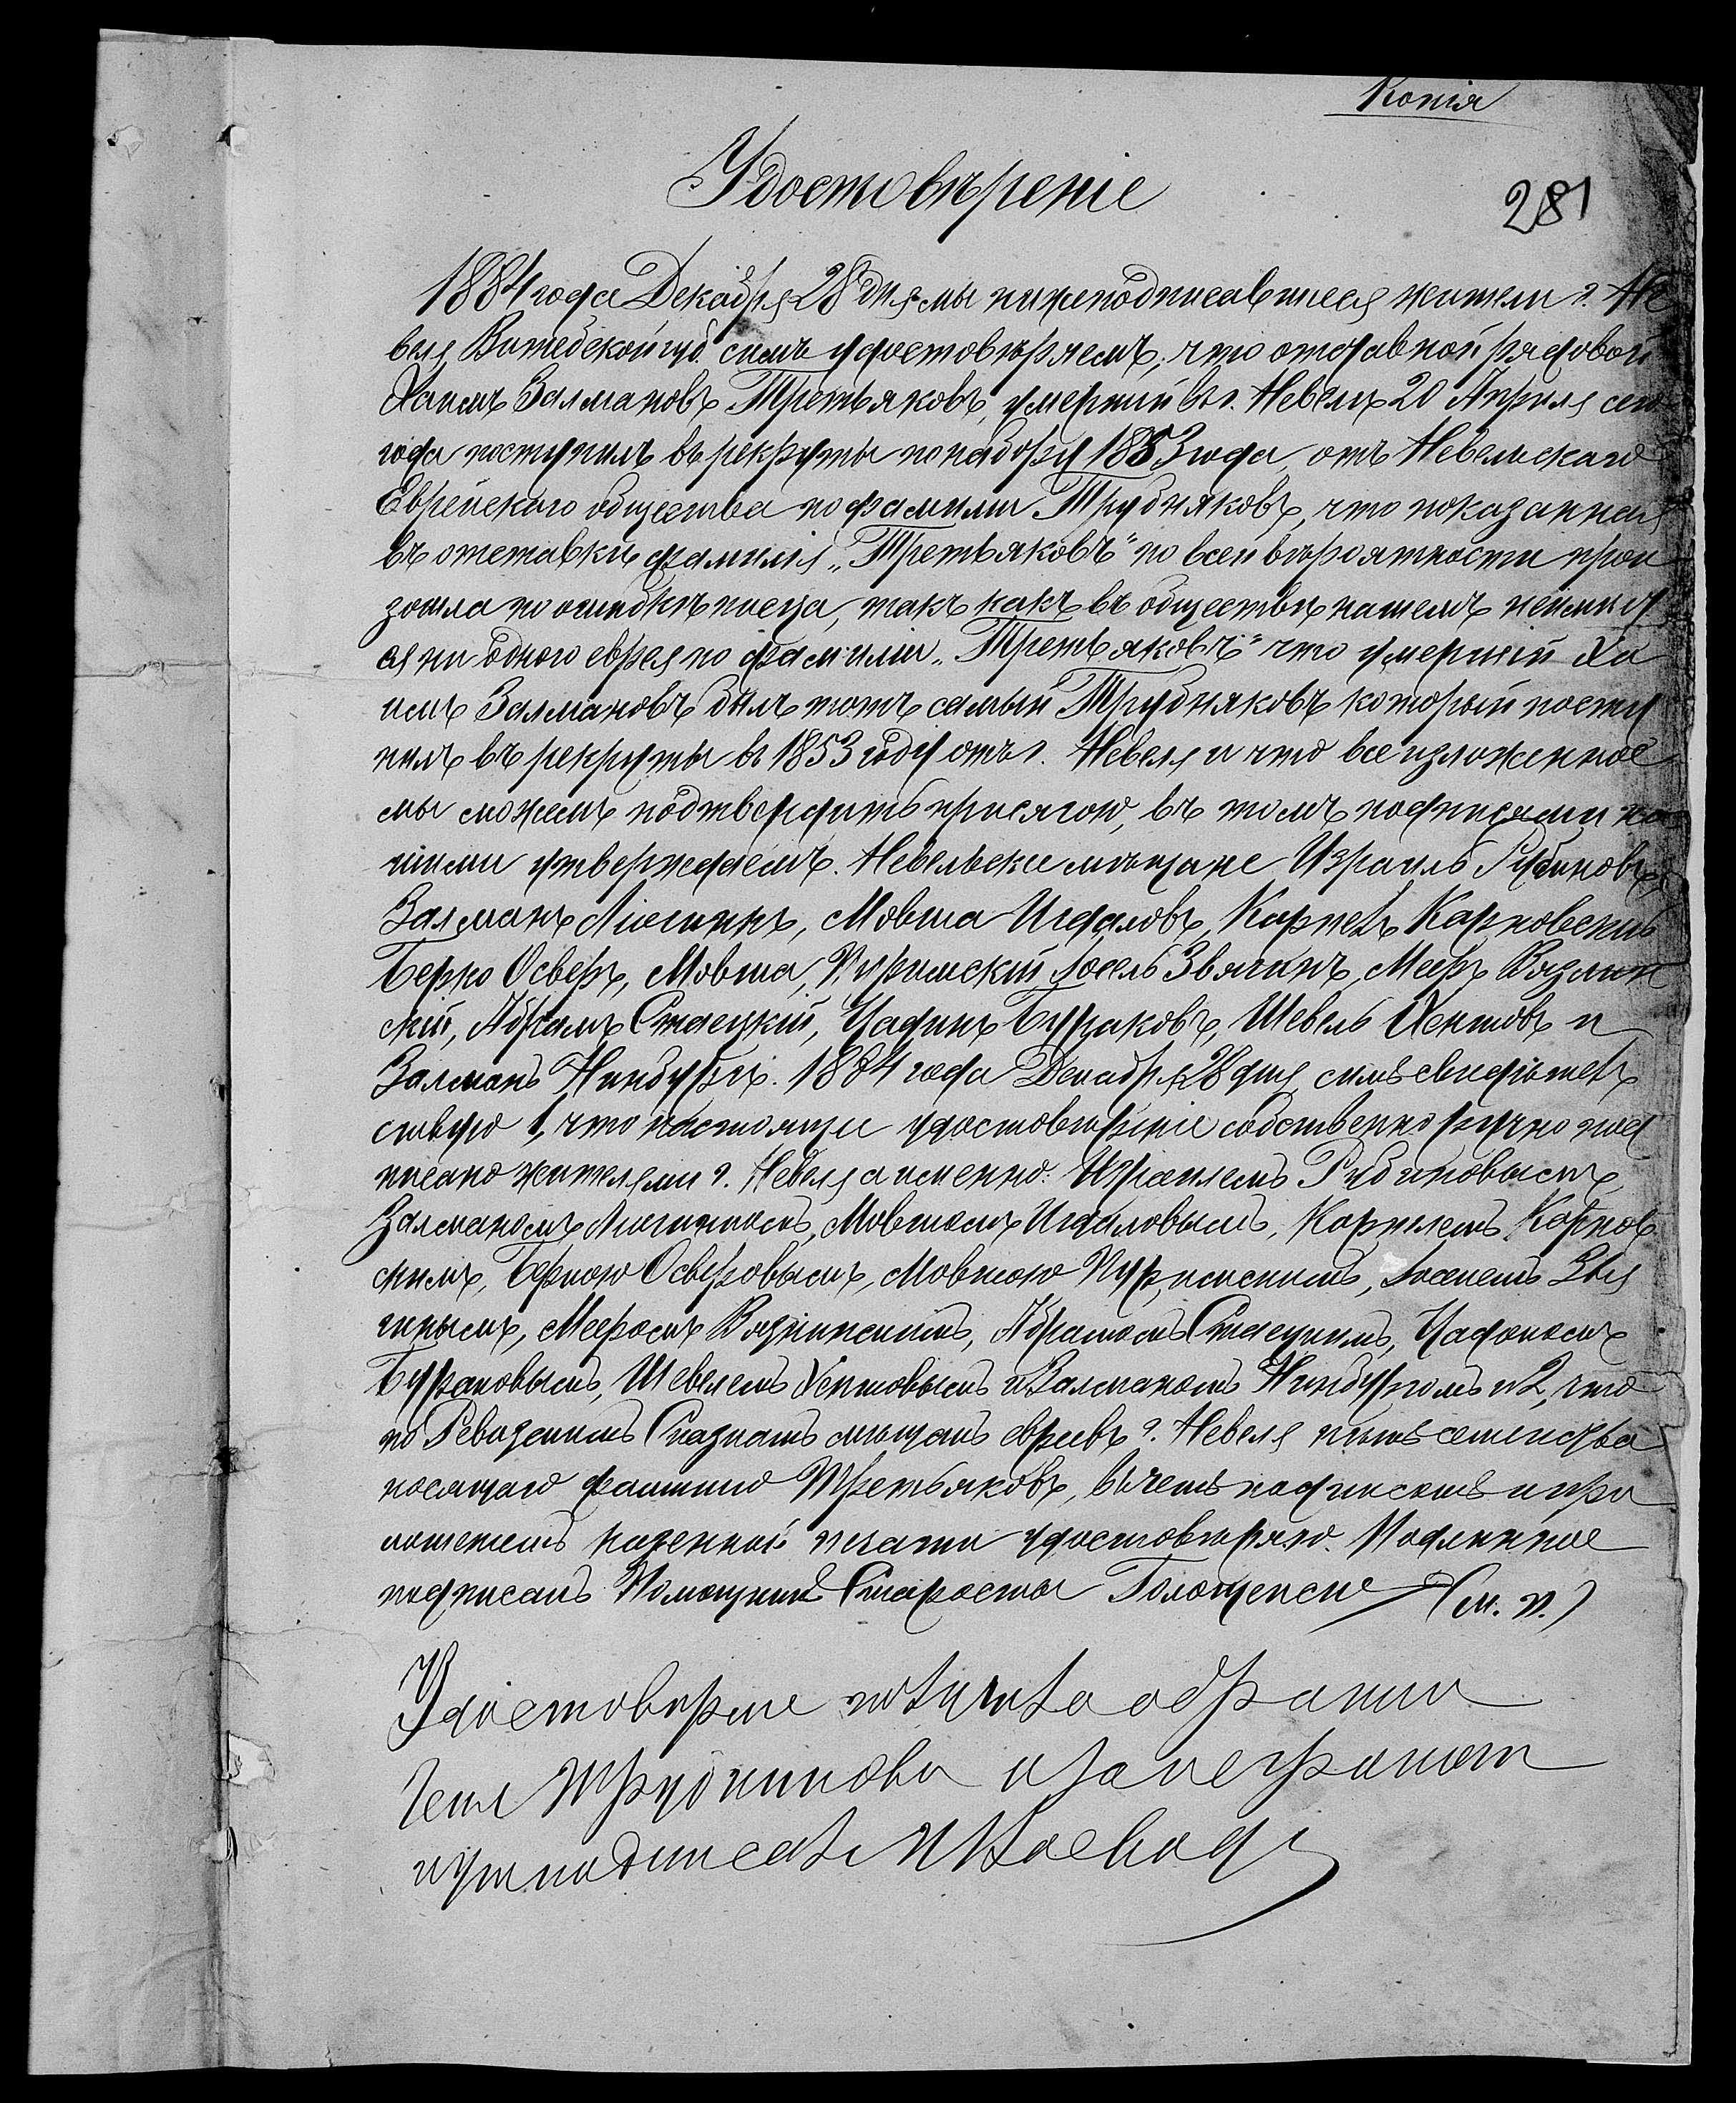 Копія
Удостовѣреніе
281
1884 года Декабря 28 дня мы нижеподписавшиеся жители г. Не
веля Витебской губ. симъ удостовѣряемъ, что отставной рядовой
Хаимъ Залмановъ Третьяковъ, умершій въ г. Невелѣ 20 Апреля сего
года поступилъ въ рекруты по набору 1853 года отъ Невельскаго
Еврейскаго общества по фамиліи Трубняковъ, что показанная
въ отставкѣ фамилія „Третьяковъ" по всей вѣроятности прои
зошла по ошибкѣ писца, такъ какъ въ обществѣ нашемъ неимеет
ся ни одного еврея по фамиліи „Третьяковъ" что умершій Ха
имъ Залмановъ былъ тотъ самый Трубняковъ который посту
пилъ въ рекруты въ 1853 году отъ г. Невеля и что все изложенное
мы можемъ подтвердить присягою, въ томъ подписями на
шими утверждаемъ. Невельские мѣщане Израиль Рубиновъ,
Залманъ Люсинъ, Мовша Игдаловъ, Карпелъ Карповскій
Берко Осверъ, Мовша Пуримскій Іосель Звягинъ, Мееръ Вязмин
скій, Абрамъ Стаецкій, Цадикъ Бураковъ, Шевель Хентовъ и
Залманъ Нинбургъ. 1884 года Декабря 28 дня симъ свидѣтель
ствую 1, что настоящее удостовѣреніе собственноручно под
писано жителями г. Невеля а именно: Израилемъ Рубиновымъ,
Залманомъ Люсинымъ, Мовшою Игдаловымъ, Карпелемъ Карпов
скимъ, Беркою Осверовымъ, Мовшою Пуримскимъ, Іоселемъ Звя
гинымъ, Мееромъ Вязминскимъ, Абрамомъ Стаецкимъ, Цадикомъ
Бураковымъ, Шевелемъ Хентовымъ и Залманомъ Нинбургомъ и 2, что
по Ревизскимъ Сказкамъ мѣщанъ евреевъ г. Невеля нѣтъ семейства
носящаго фамилію Третьяковъ, въ чемъ подписомъ и при
ложеніемъ казенной печати удостовѣряю. Подлинное
подписалъ Помощникъ Старосты (м. п.)
Удостовѣреніе получила обратно